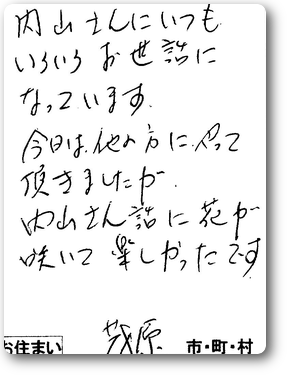 内山さんにいつも
いろいろお世詰に
なっています.
今日は、他の方に、やって
頂きましたが.
内山さん詰に花が
咲いて楽しかったです
お住まい 茂原 市・町・村